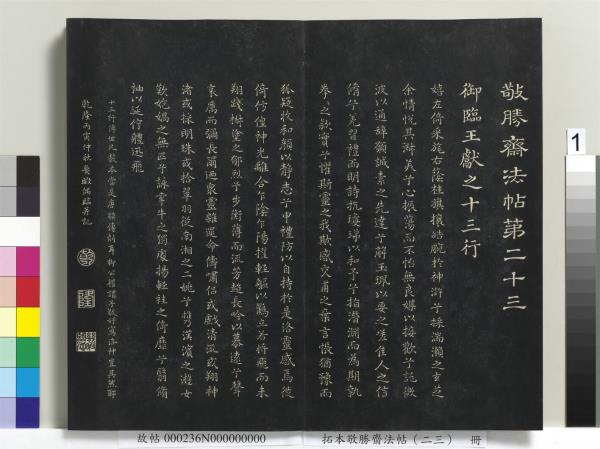 敬勝齋法帖第二十三
御臨王獻之十三行
嬉左倚采旄右蔭桂旗攘皓腕於神滸兮採湍瀨之玄芝
余情悅其淑美兮心振蕩而不怡無良媒以接歡兮託微
波以通辭願誠素之先達兮解玉珮以要之嗟佳人之信
脩兮羌習禮而明詩抗瓊珶以和予兮指潛淵而為期執
拳〻之款實兮懼斯靈之我欺感交甫之棄言悵猶豫而
狐疑收和顏以靜志兮申禮防以自持於是洛靈感焉徙
倚仿偟神光離合乍陰乍陽擢輕軀以鶴立若將飛而未
翔踐椒塗之郁烈兮步衡薄而流芳超長吟以慕遠兮聲
哀厲而彌長爾迺眾靈雜遝命儔嘯侶或戲清流或翔神
渚或採明珠或拾翠羽從南湘之二姚兮攜漢濱之遊女
歎匏媧之無匹兮詠牽牛之獨處揚輕袿之倚靡兮翳脩
袖以延佇體迅飛
十三行傳世凡數本當以唐柳公權謂子敬好寫洛神宜其然耶
乾隆丙寅仲秋臨并記
1
故帖 000236N000000000
拓本敬勝齋法帖（二三） 冊